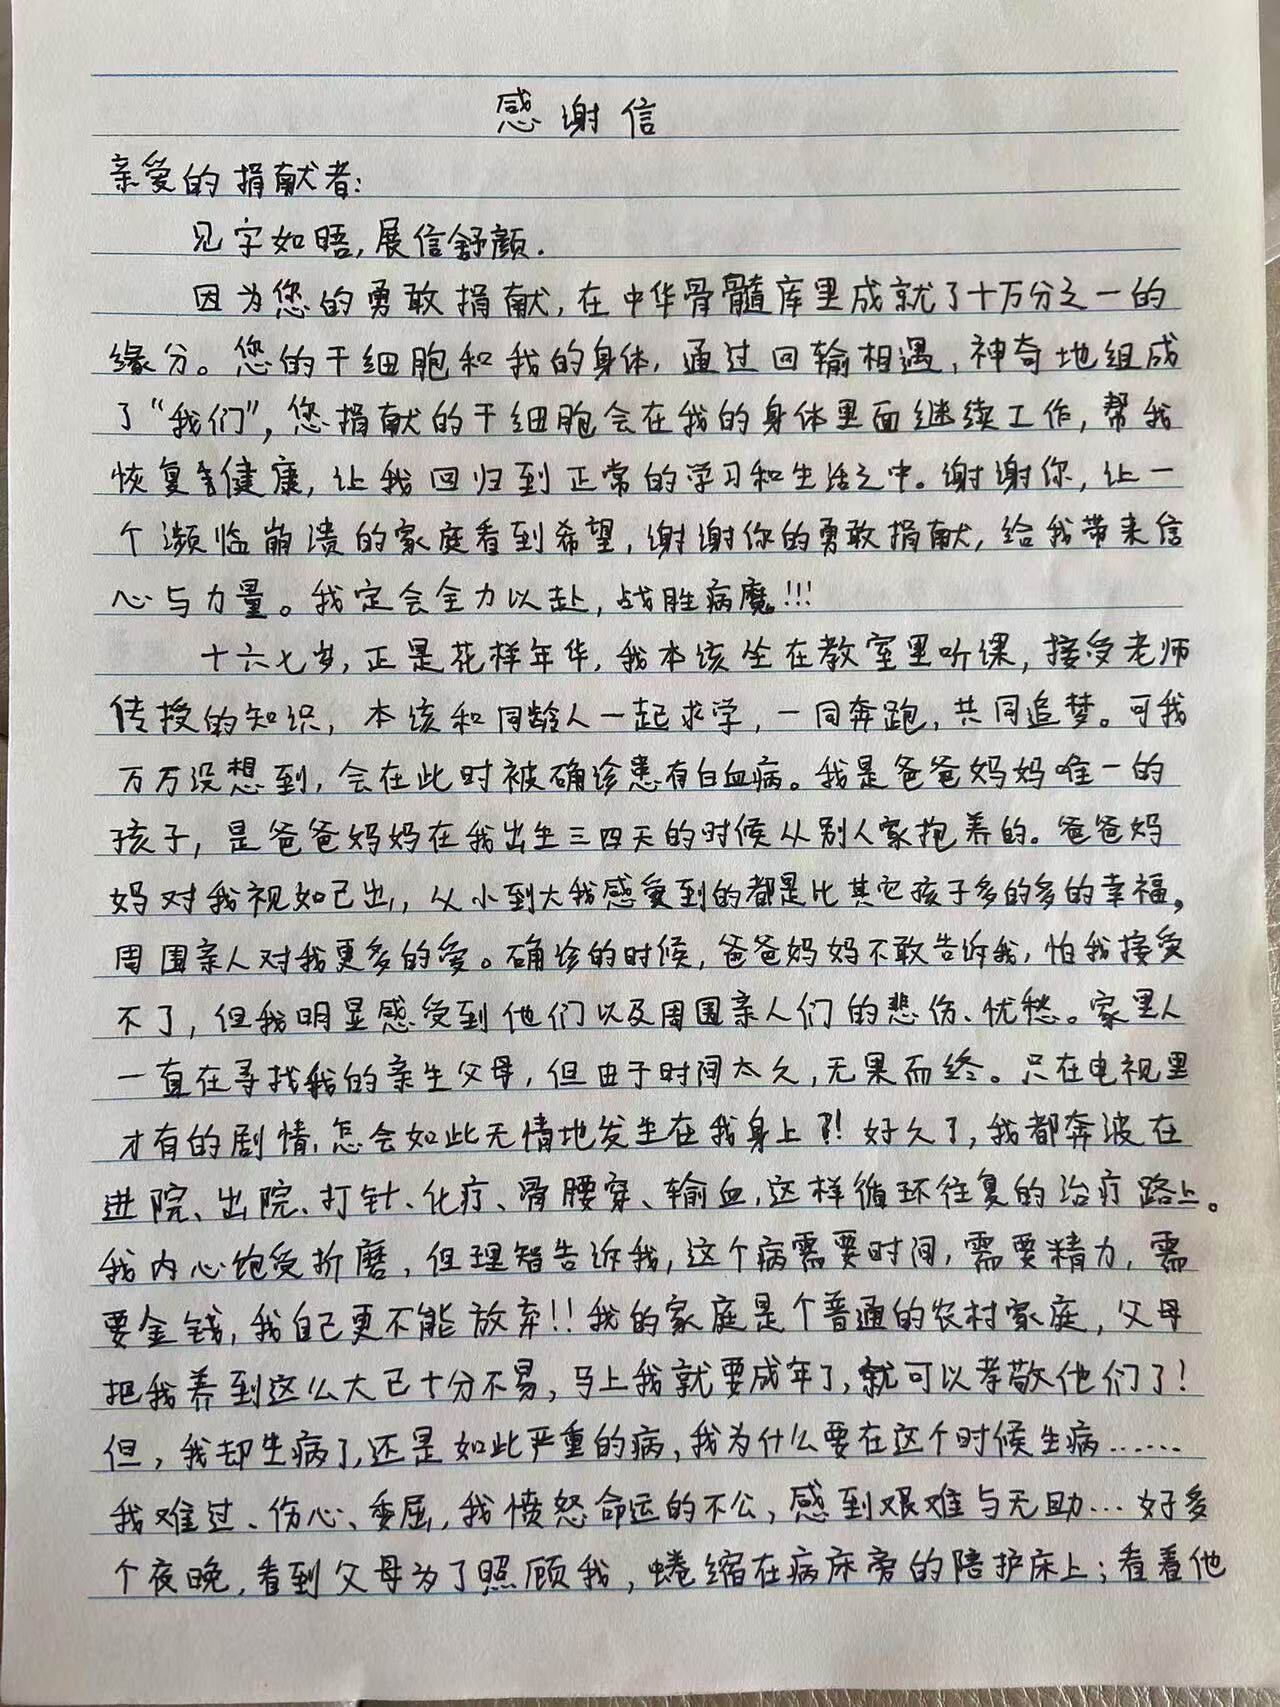 感谢信
亲爱的捐献者:
见字如晤,展信舒颜.
因为您的勇敢捐献,在中华骨髓库里成就了十万分之一的
缘分。您的干细胞和我的身体,通过回输相遇,神奇地组成
了“我们”,您捐献的干细胞会在我的身体里面继续工作,帮我
恢复健康,让我回归到正常的学习和生活之中。谢谢你,让一
个濒临崩溃的家庭看到希望,谢谢你的勇敢捐献,给我带来信
心与力量。我定会全力以赴,战胜病魔!!!
十六七岁,正是花样年华,我本该坐在教室里听课,接受老师
传授的知识,本该和同龄人一起求学,一同奔跑,共同追梦。可我
万万没想到,会在此时被确诊患有白血病。我是爸爸妈妈唯一的
孩子,是爸爸妈妈在我出生三四天的时候从别人家抱养的。爸爸妈
妈对我视如己出,从小到大我感受到的都是比其它孩子多的多的幸福,
周围亲人对我更多的爱。确诊的时候,爸爸妈妈不敢告诉我,怕我接受
不了,但我明显感受到他们以及周围亲人们的悲伤、忧愁。家里人
一直在寻找我的亲生父母,但由于时间太久,无果而终。只在电视里
才有的剧情,怎会如此无情地发生在我身上?!好久了,我都奔波在
进院、出院、打针、化疗、骨腰穿、输血,这样循环往复的治疗路上。
我内心饱受折磨,但理智告诉我,这个病需要时间,需要精力,需
要金钱,我自己更不能放弃!!我的家庭是个普通的农村家庭,父母
把我养到这么大已十分不易,马上我就要成年了,就可以孝敬他们了!
但,我却生病了,还是如此严重的病,我为什么要在这个时候生病......
我难过、伤心、委屈,我愤怒命运的不公,感到艰难与无助...好多
个夜晚,看到父母为了照顾我,蜷缩在病床旁的陪护床上;看着他